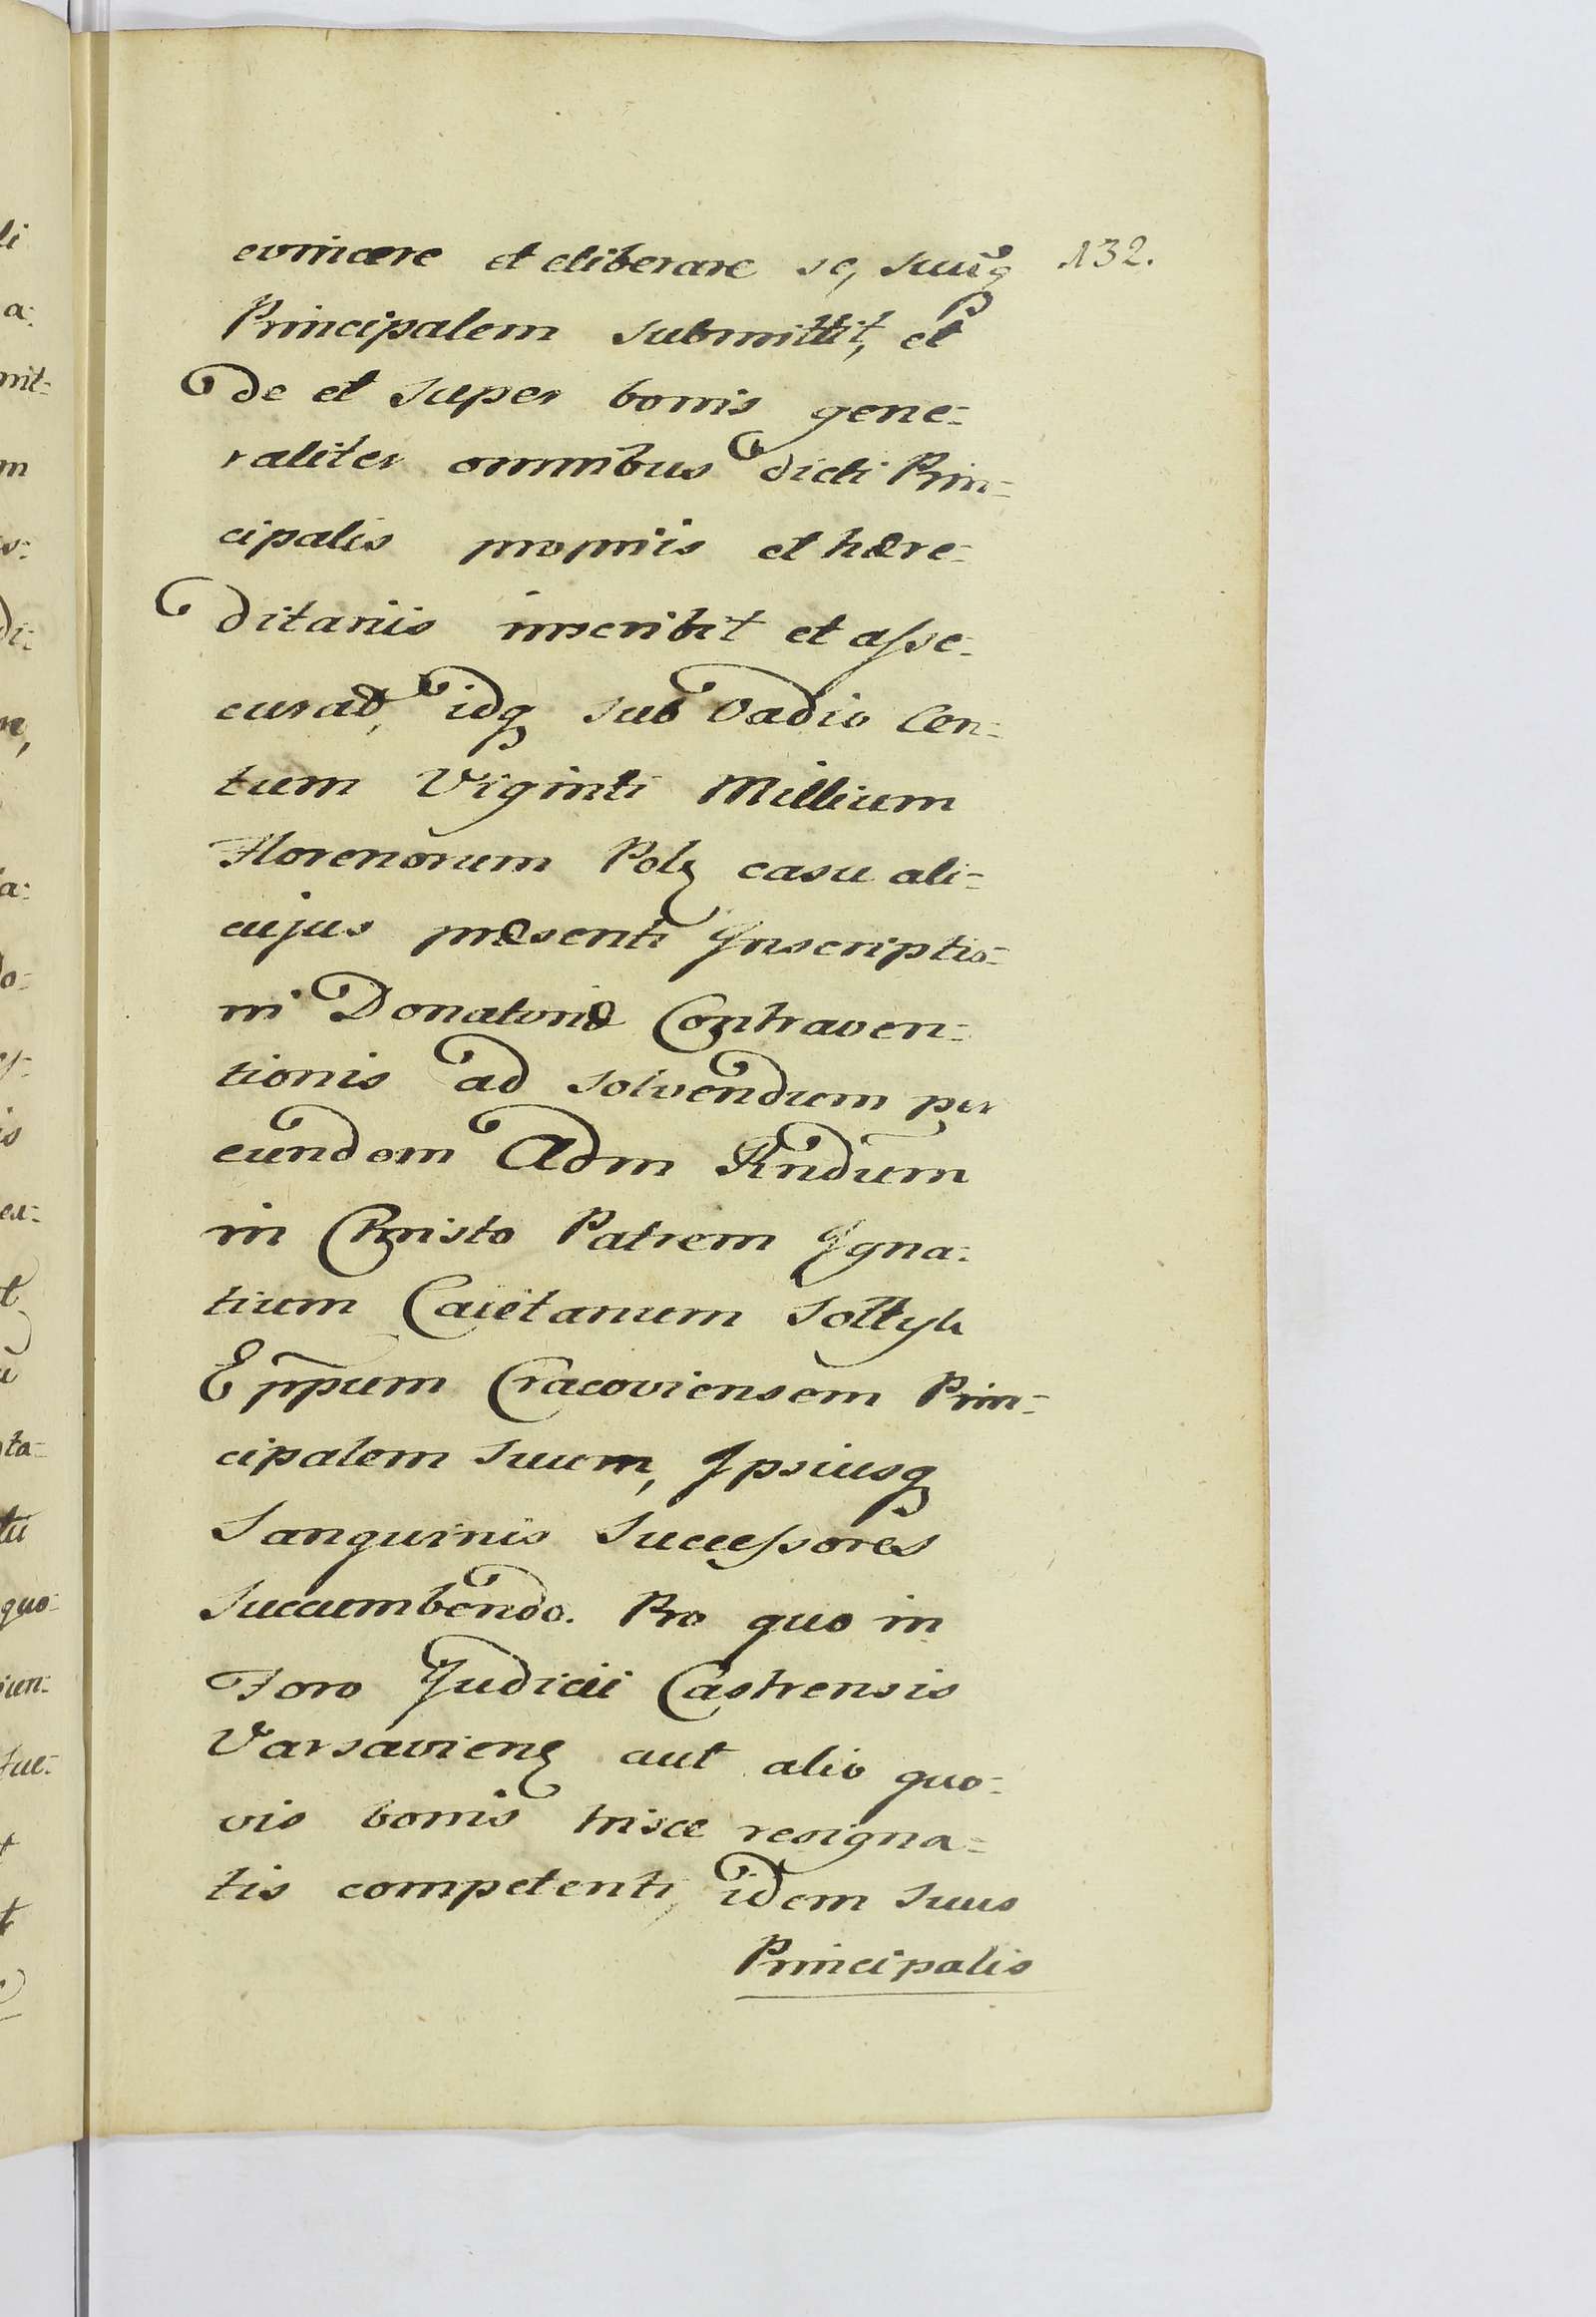 132.
evincere et eliberare se, suūq̃
Principalem submittit, et
de et super bonis gene=
raliter omnibus dicti Prin=
cipalis propriis et hære=
ditariis inscribit et asse=
curat, idq̃ sub Vadio Cen=
tum Viginti Millium
Florenorum Polʒ casu ali=
cujus præsenti Inscriptio=
ni Donatoriæ Contraven=
tionis ad solvendum per
eundem Adm Rndum̄
in Christo Patrem Igna=
tium Caietanum Sołtyk
Ep̄p̄um Cracoviensem Prin=
cipalem suum, Ipsiusq̃
Sanguinis Successores
succumbendo. Pro quo in
Foro Judicii Castrensis
Varsavienʒ aut alio quo=
vis bonis hisce resigna=
tis competenti, idem suus
Principalis